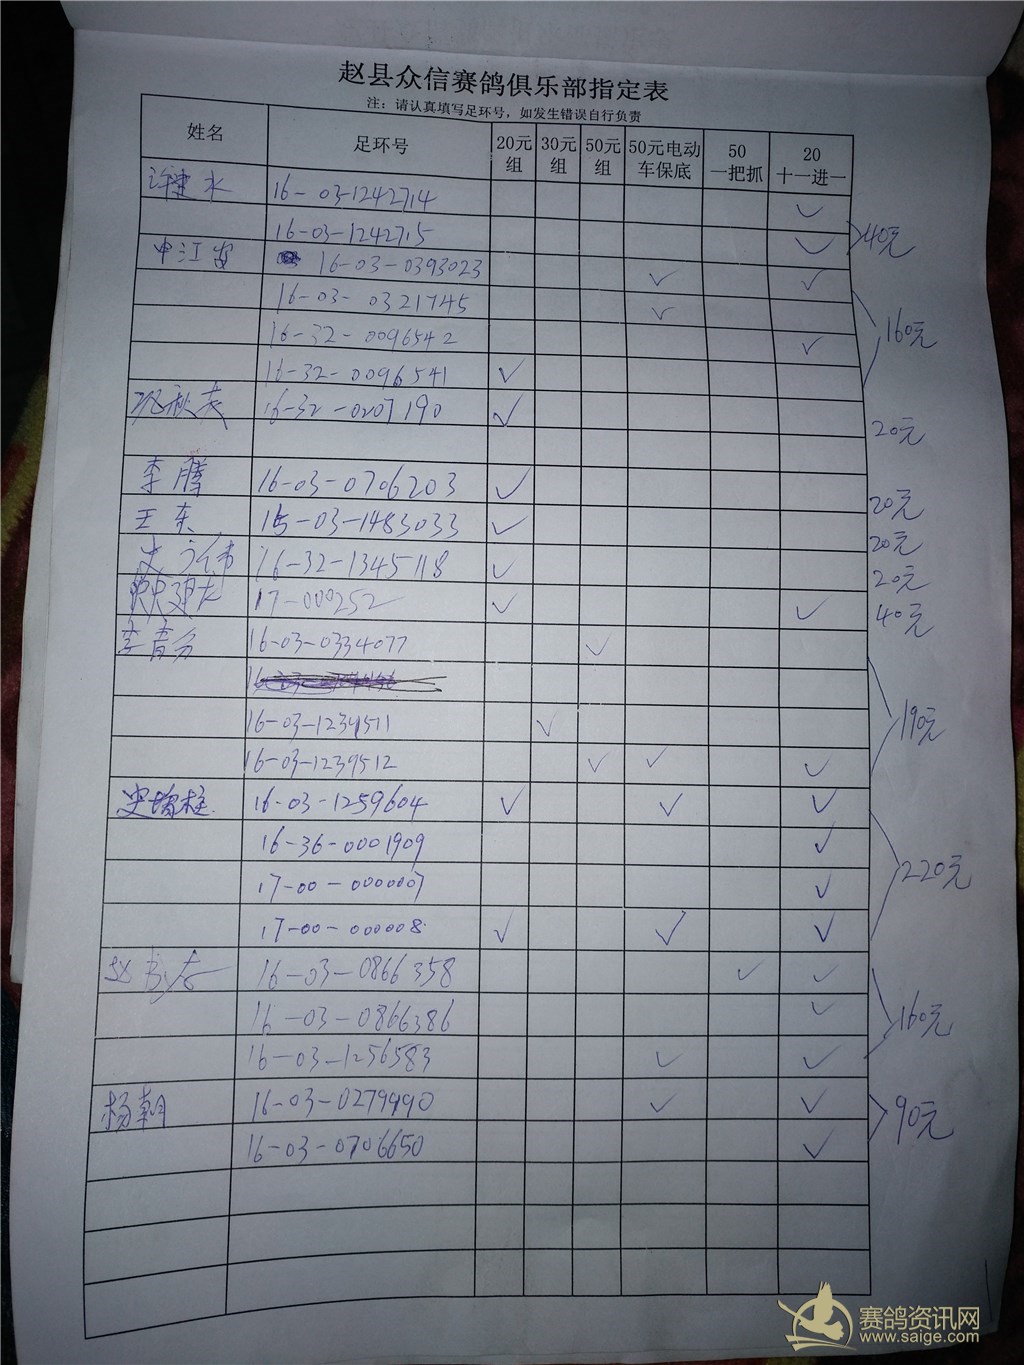 赵县众信赛鸽俱乐部指定表
注：请认真填写足环号，如发生错误自行负责
姓名 足环号 20元组 30元组 50元组 50元电动车保底 50一把抓 20十一进一
许建水 16-03-1242714 ✓
16-03-1242715 ✓ 40元
申江 16-03-0393023 ✓ ✓
16-03-0321745 ✓
16-32-0096542 ✓ 160元
16-32-0096541 ✓
16-32-0207190 ✓
20元
李腾 16-03-0706203 ✓ 20元
王东 15-03-1483033 ✓ 20元
16-32-1345118 ✓ 20元
17-000252 ✓ ✓ 40元
李青分 16-03-0334077 ✓
16-03-1239511 ✓ 190元
16-03-1239512 ✓ ✓ ✓
史增柱 16-03-1259604 ✓ ✓ ✓
16-36-0001909 ✓
17-00-0000007 ✓ 220元
17-00-000008 ✓ ✓ ✓
赵 16-03-0866358 ✓ ✓
16-03-0866386 ✓ 160元
16-03-1256583 ✓ ✓
杨朝 16-03-0279990 ✓ ✓ 90元
16-03-0706650 ✓
赛鸽资讯网
www.saige.com